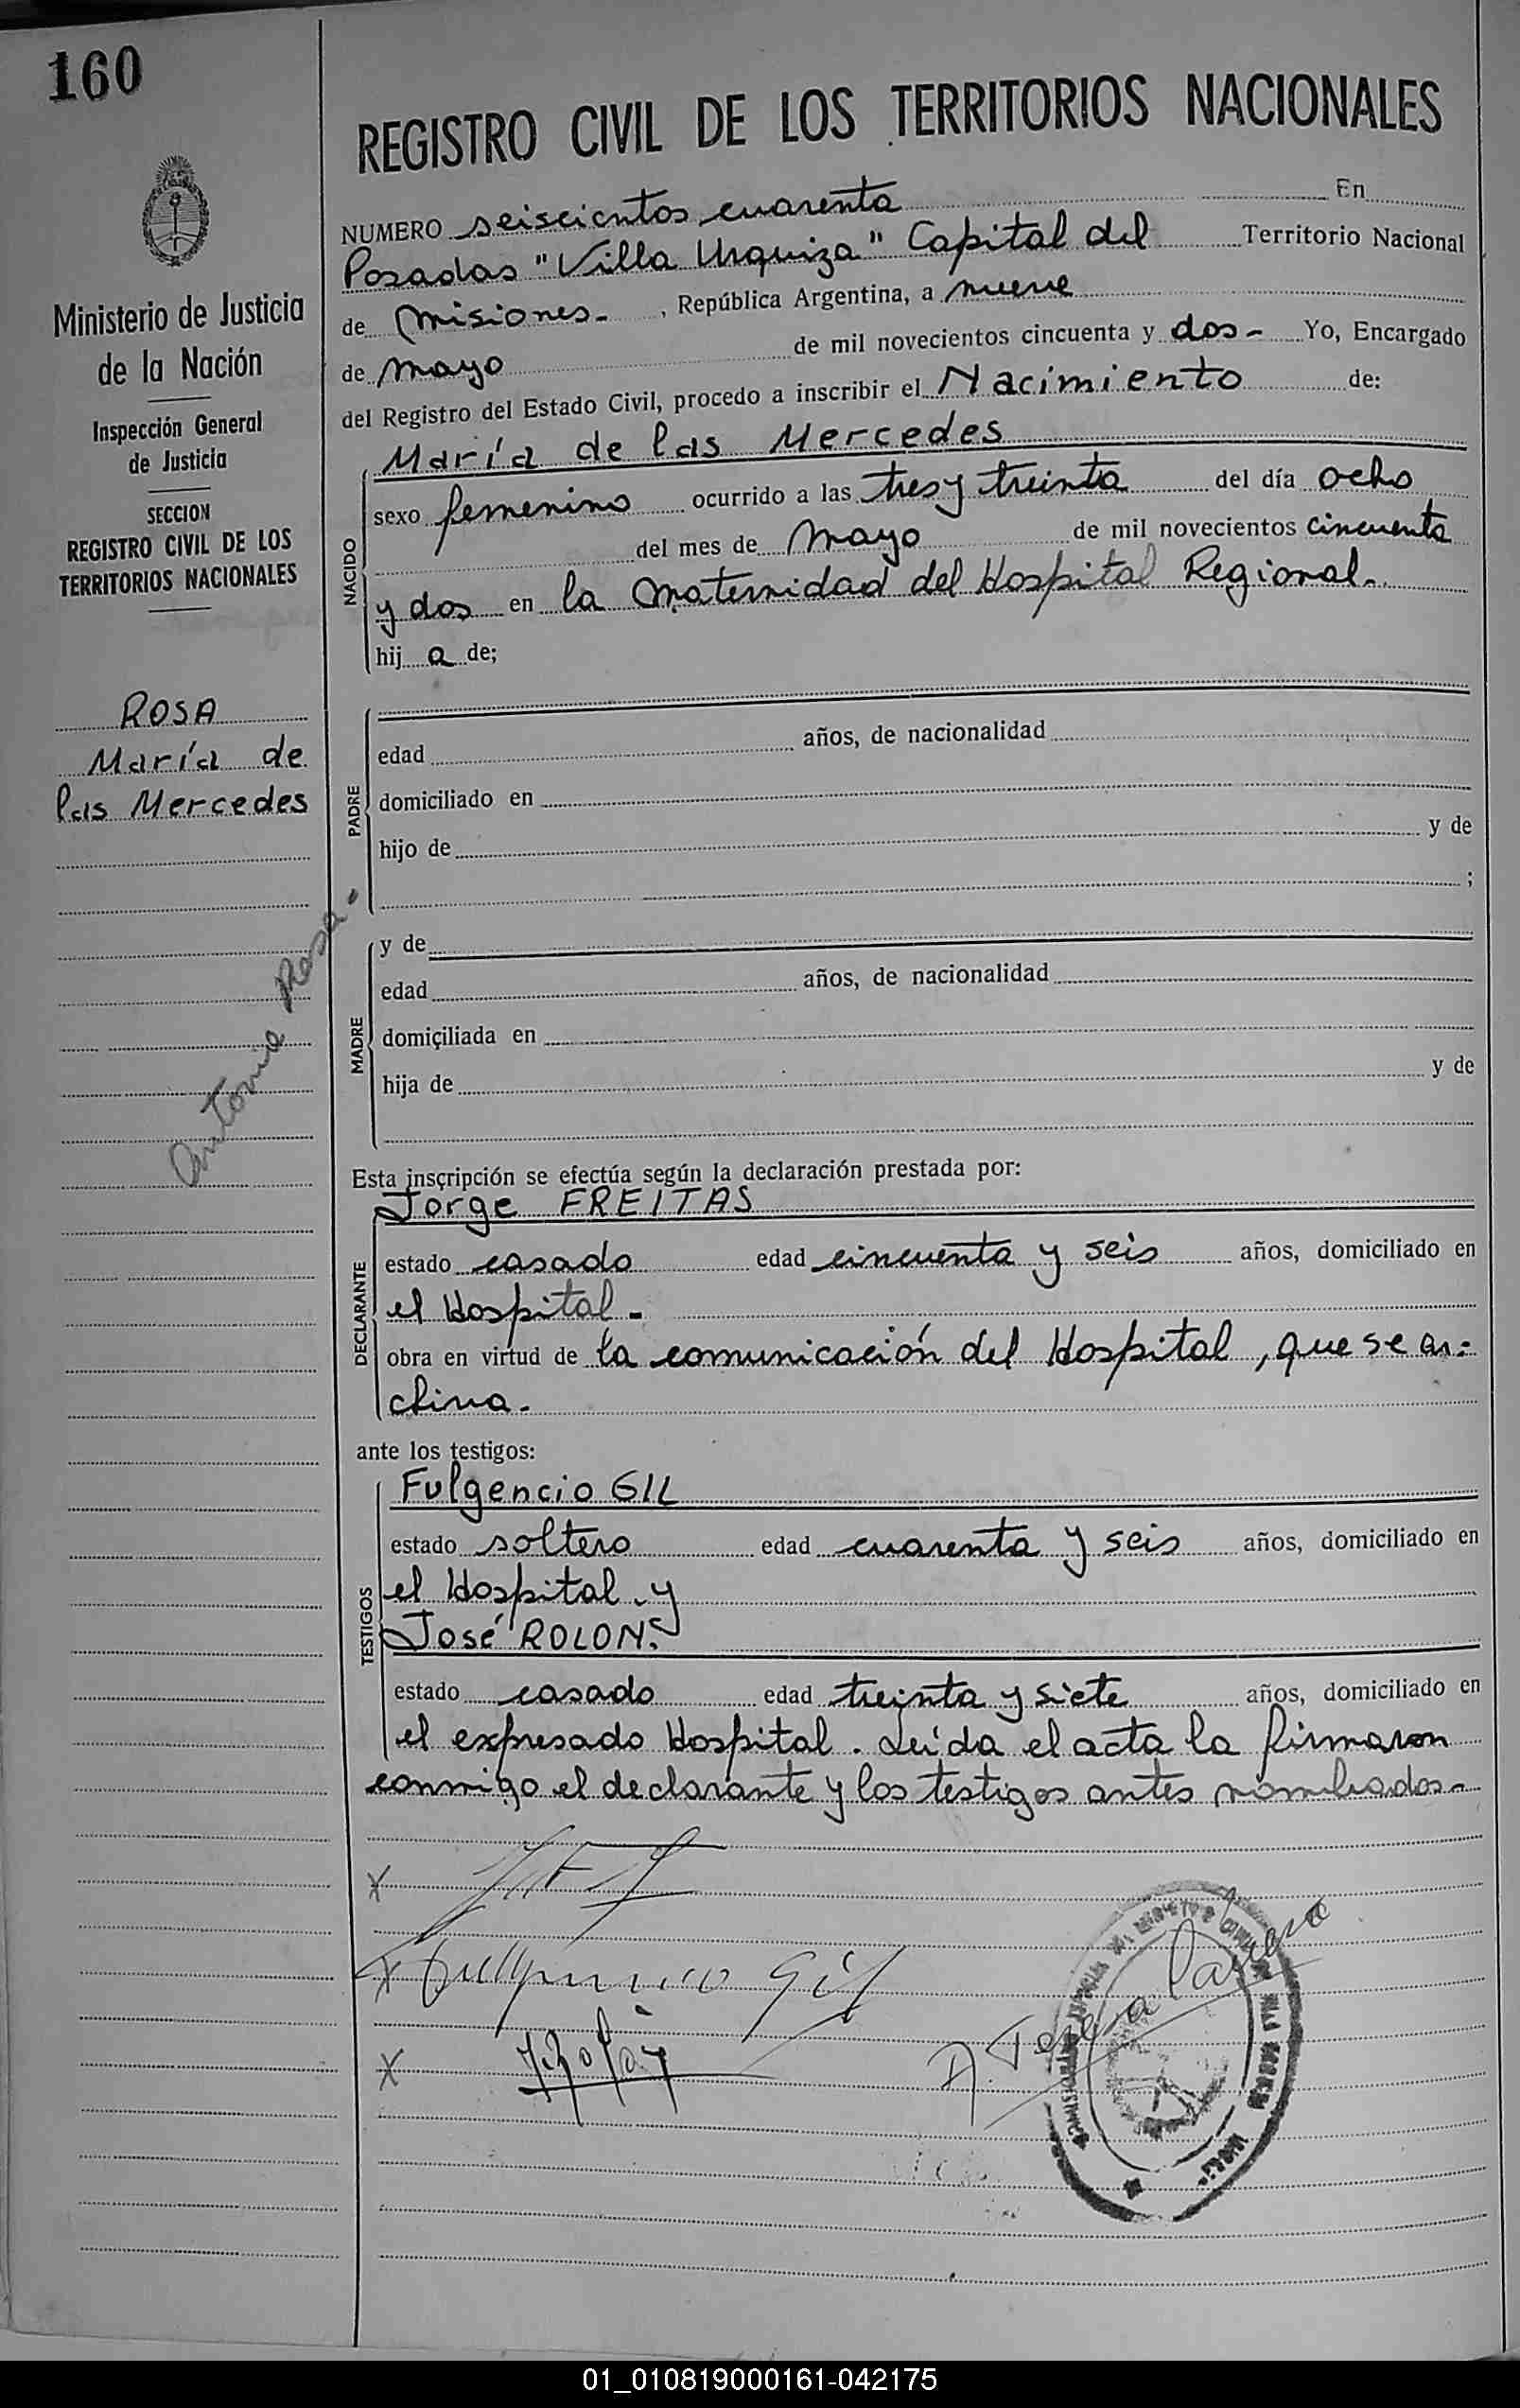 160
Ministerio de Justicia
de la Nación
Inspección General
de Justicia
SECCION
REGISTRO CIVIL DE LOS
TERRITORIOS NACIONALES
ROSA
María de
las Mercedes
Antonia Rosa.
REGISTRO CIVIL DE LOS TERRITORIOS NACIONALES
NUMERO seiscientos cuarenta En
Posadas "Villa Urquiza" Capital del Territorio Nacional
de Misiones. , República Argentina, a nueve
de mayo de mil novecientos cincuenta y dos - Yo, Encargado
del Registro del Estado Civil, procedo a inscribir el Nacimiento de:
María de las Mercedes
NACIDO
sexo femenino ocurrido a las tres y treinta del día ocho
del mes de Mayo de mil novecientos cincuenta
y dos en la Maternidad del Hospital Regional.
hij a de;
PADRE
edad años, de nacionalidad
domiciliado en
hijo de y de
;
MADRE
y de
edad años, de nacionalidad
domiciliada en
hija de y de
Esta inscripción se efectúa según la declaración prestada por:
DECLARANTE
Jorge FREITAS
estado casado edad cincuenta y seis años, domiciliado en
el Hospital.
obra en virtud de la comunicación del Hospital, que se ar=
chiva.
ante los testigos:
TESTIGOS
Fulgencio GIL
estado soltero edad cuarenta y seis años, domiciliado en
el Hospital. y
José ROLON.
estado casado edad treinta y siete años, domiciliado en
el expresado Hospital. Leída el acta la firmaron
conmigo el declarante y los testigos antes nombrados.
x
x Fulgencio Gil
x
01_010819000161-042175